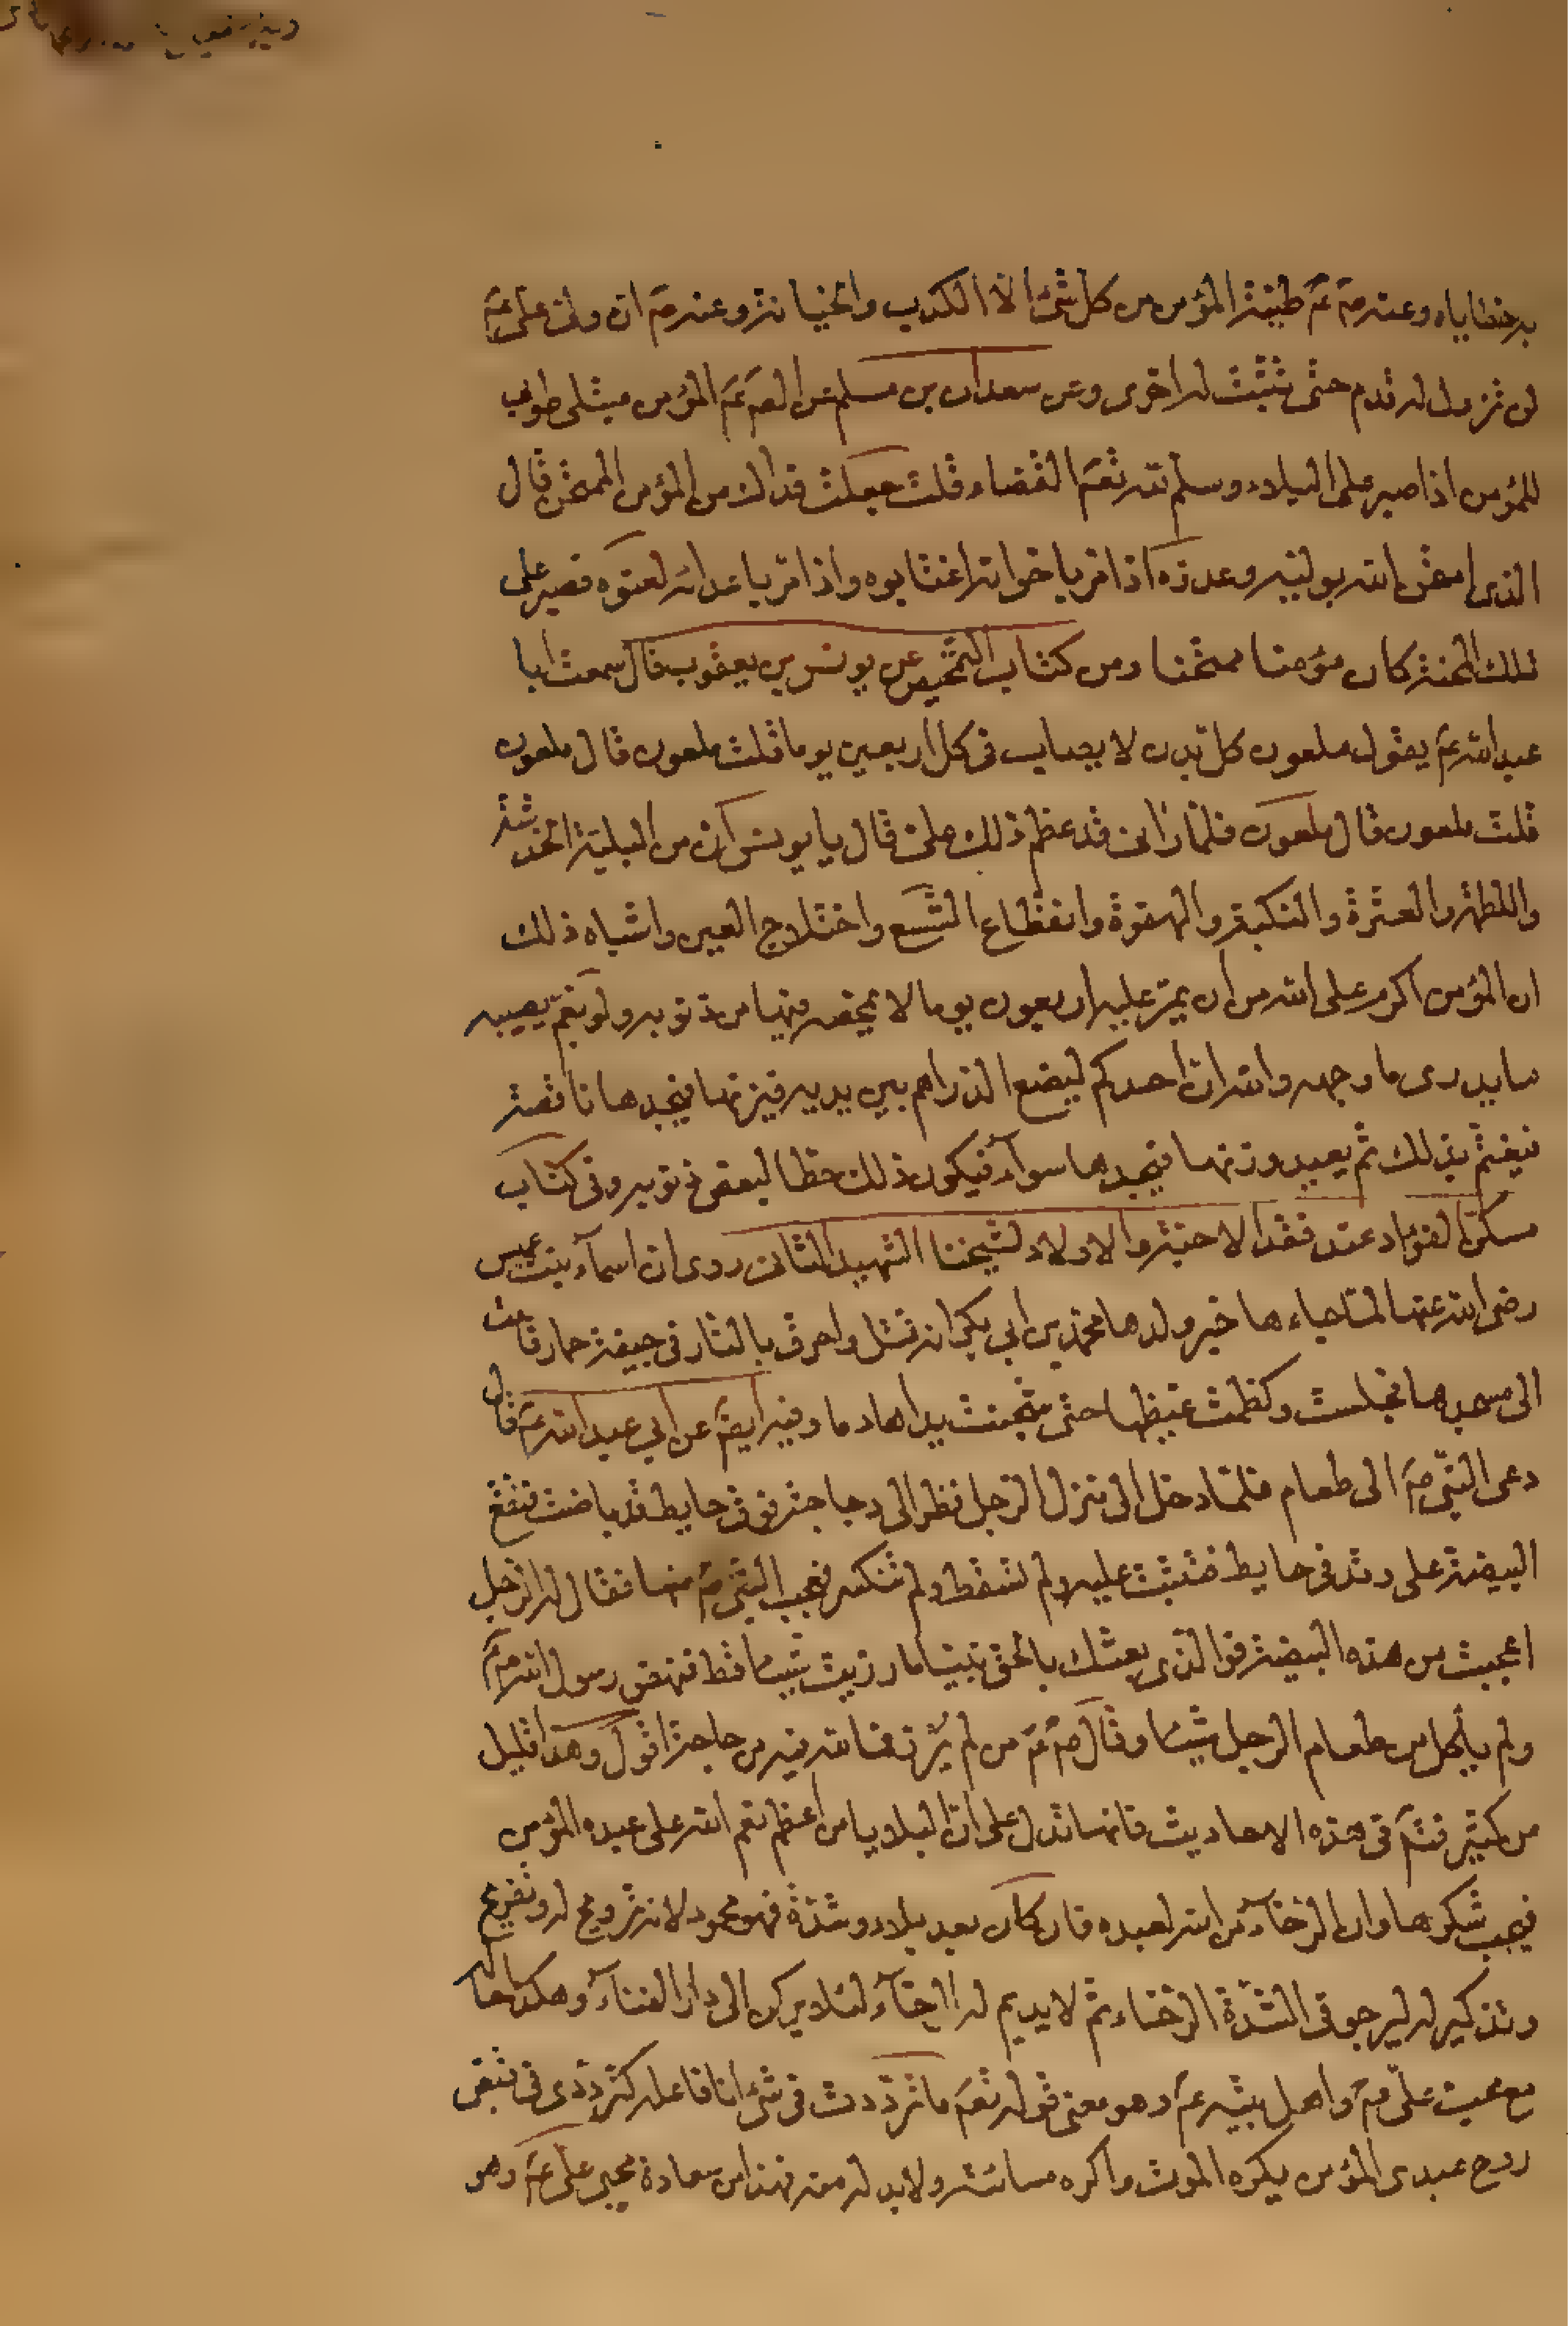 به خطاياه وعنه صم عم طينة المؤمن من كل شئ الا الكذب والخيانة وعنه صم ان ولى على عم
لن تزول له قدم حتى تثبت له اخرى وعن سعدان بن مسلم عن الصم عم المؤمن مبتلى طوبى
للمؤمن اذا صبر على البلاء وسلم لله تعم القضاء قلت جعلت فداك من المؤمن الممتحن قال
الذى امتحن الله بوليه وعدوه اذا مر باخوانه اغتابوه واذا مر باعدائه لعنوه فصبر على
تلك المحنة كان مؤمنا ممتحنا ومن كتاب التمحيص عن يونس بن يعقوب قال سمعت ابا
عبد الله عم يقول ملعون كل بدن لا يصاب فى كل اربعين يوما قلت ملعون قال ملعون
قلت ملعون قال ملعون فلما رانى قد عظم ذلك على قال يا يونس ان من البلية الخدشة
واللطمة والعثرة والنكبة والهفوة وانقطاع الشسع واختلاج العين واشباه ذلك
ان المؤمن اكرم على الله من ان يمر عليه اربعون يوما لا يمحصه فيها من ذنوبه ولو بغم يصيبه
ما يدرى ما وجهه والله ان احدكم ليضع الدراهم بين يديه فيزنها فيجدها ناقصة
فيغتم بذلك ثم يعيد وزنها فيجدها سوآء فيكون ذلك حطا لبعض ذنوبه وفى كتاب
مسكن الفؤاد عند فقد الاحبة والاولاد لشيخنا الشهيد الثانى روى ان اسمآء بنت عميس
رضى الله عنها لما جاءها خبر ولدها محمد بن ابى بكر انه قتل واحرق بالنار فى جيفة حمار قامت
الى مسجدها فجلست وكظمت غيظها حتى شخبت يداها دما وفيه ايضم عن ابى عبد الله عم قال
دعى النبى صم الى طعام فلما دخل الى منزل الرجل نظر الى دجاجة فوق حايط قد باضت فتقع
البيضة على وتد فى حايط فثبتت عليه ولم تسقط ولم تنكسر فعجب النبى صم منها فقال له الرجل
اعجبت من هذه البيضة فوالذى بعثك بالحق نبيا ما رزيت شيئا قط فنهض رسول الله صم
ولم ياكل من طعام الرجل شيئا وقال صم عم من لم يرز فما لله فيه من حاجة اقول وهذا قليل
من كثير فتم فى هذه الاحاديث فانها تدل على ان البلايا من اعظم نعم الله على عبده المؤمن
فيجب شكرها وان الرخآء من الله لعبده فان كان بعد بلاء وشدة فهو محمود لانه ترويح له وتفريح
وتذكير له ليرجو فى الشدة الرخاء ثم لا يديم له الرخآء لئلا يركن الى دار الفنآء وهكذا
مع محبت على صم واهل بيته عم وهو معنى قوله تعم ما ترددت فى شئ انا فاعله كترددى فى قبض
روح عبدى المؤمن يكره الموت واكره مسائته ولابد له منه فهذا من سعادة محبى على عم وهو